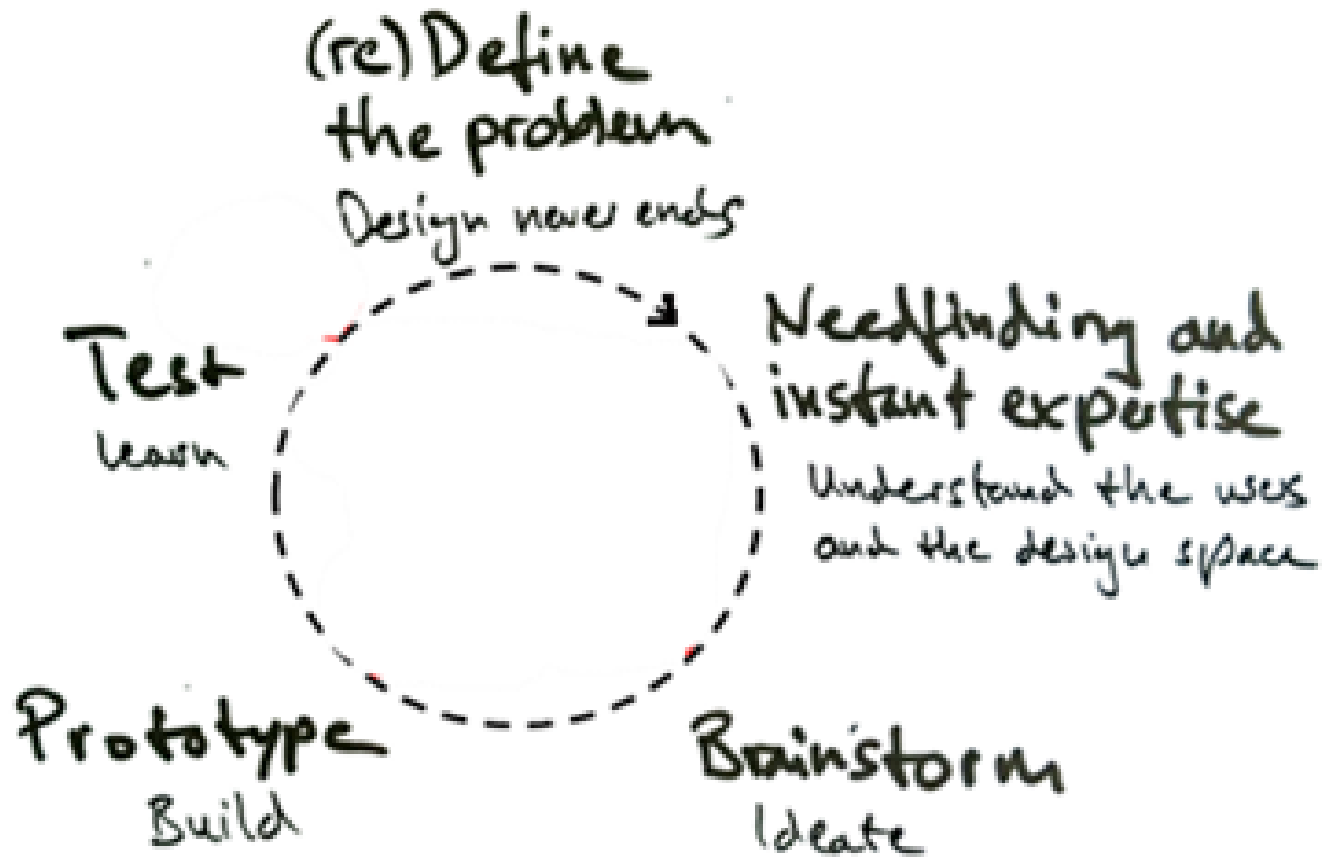 (re) Define
the problem
Design never ends
Needfinding and
instant expertise
Understand the users
and the design space
Brainstorm
Ideate
Prototype
Build
Test
Learn